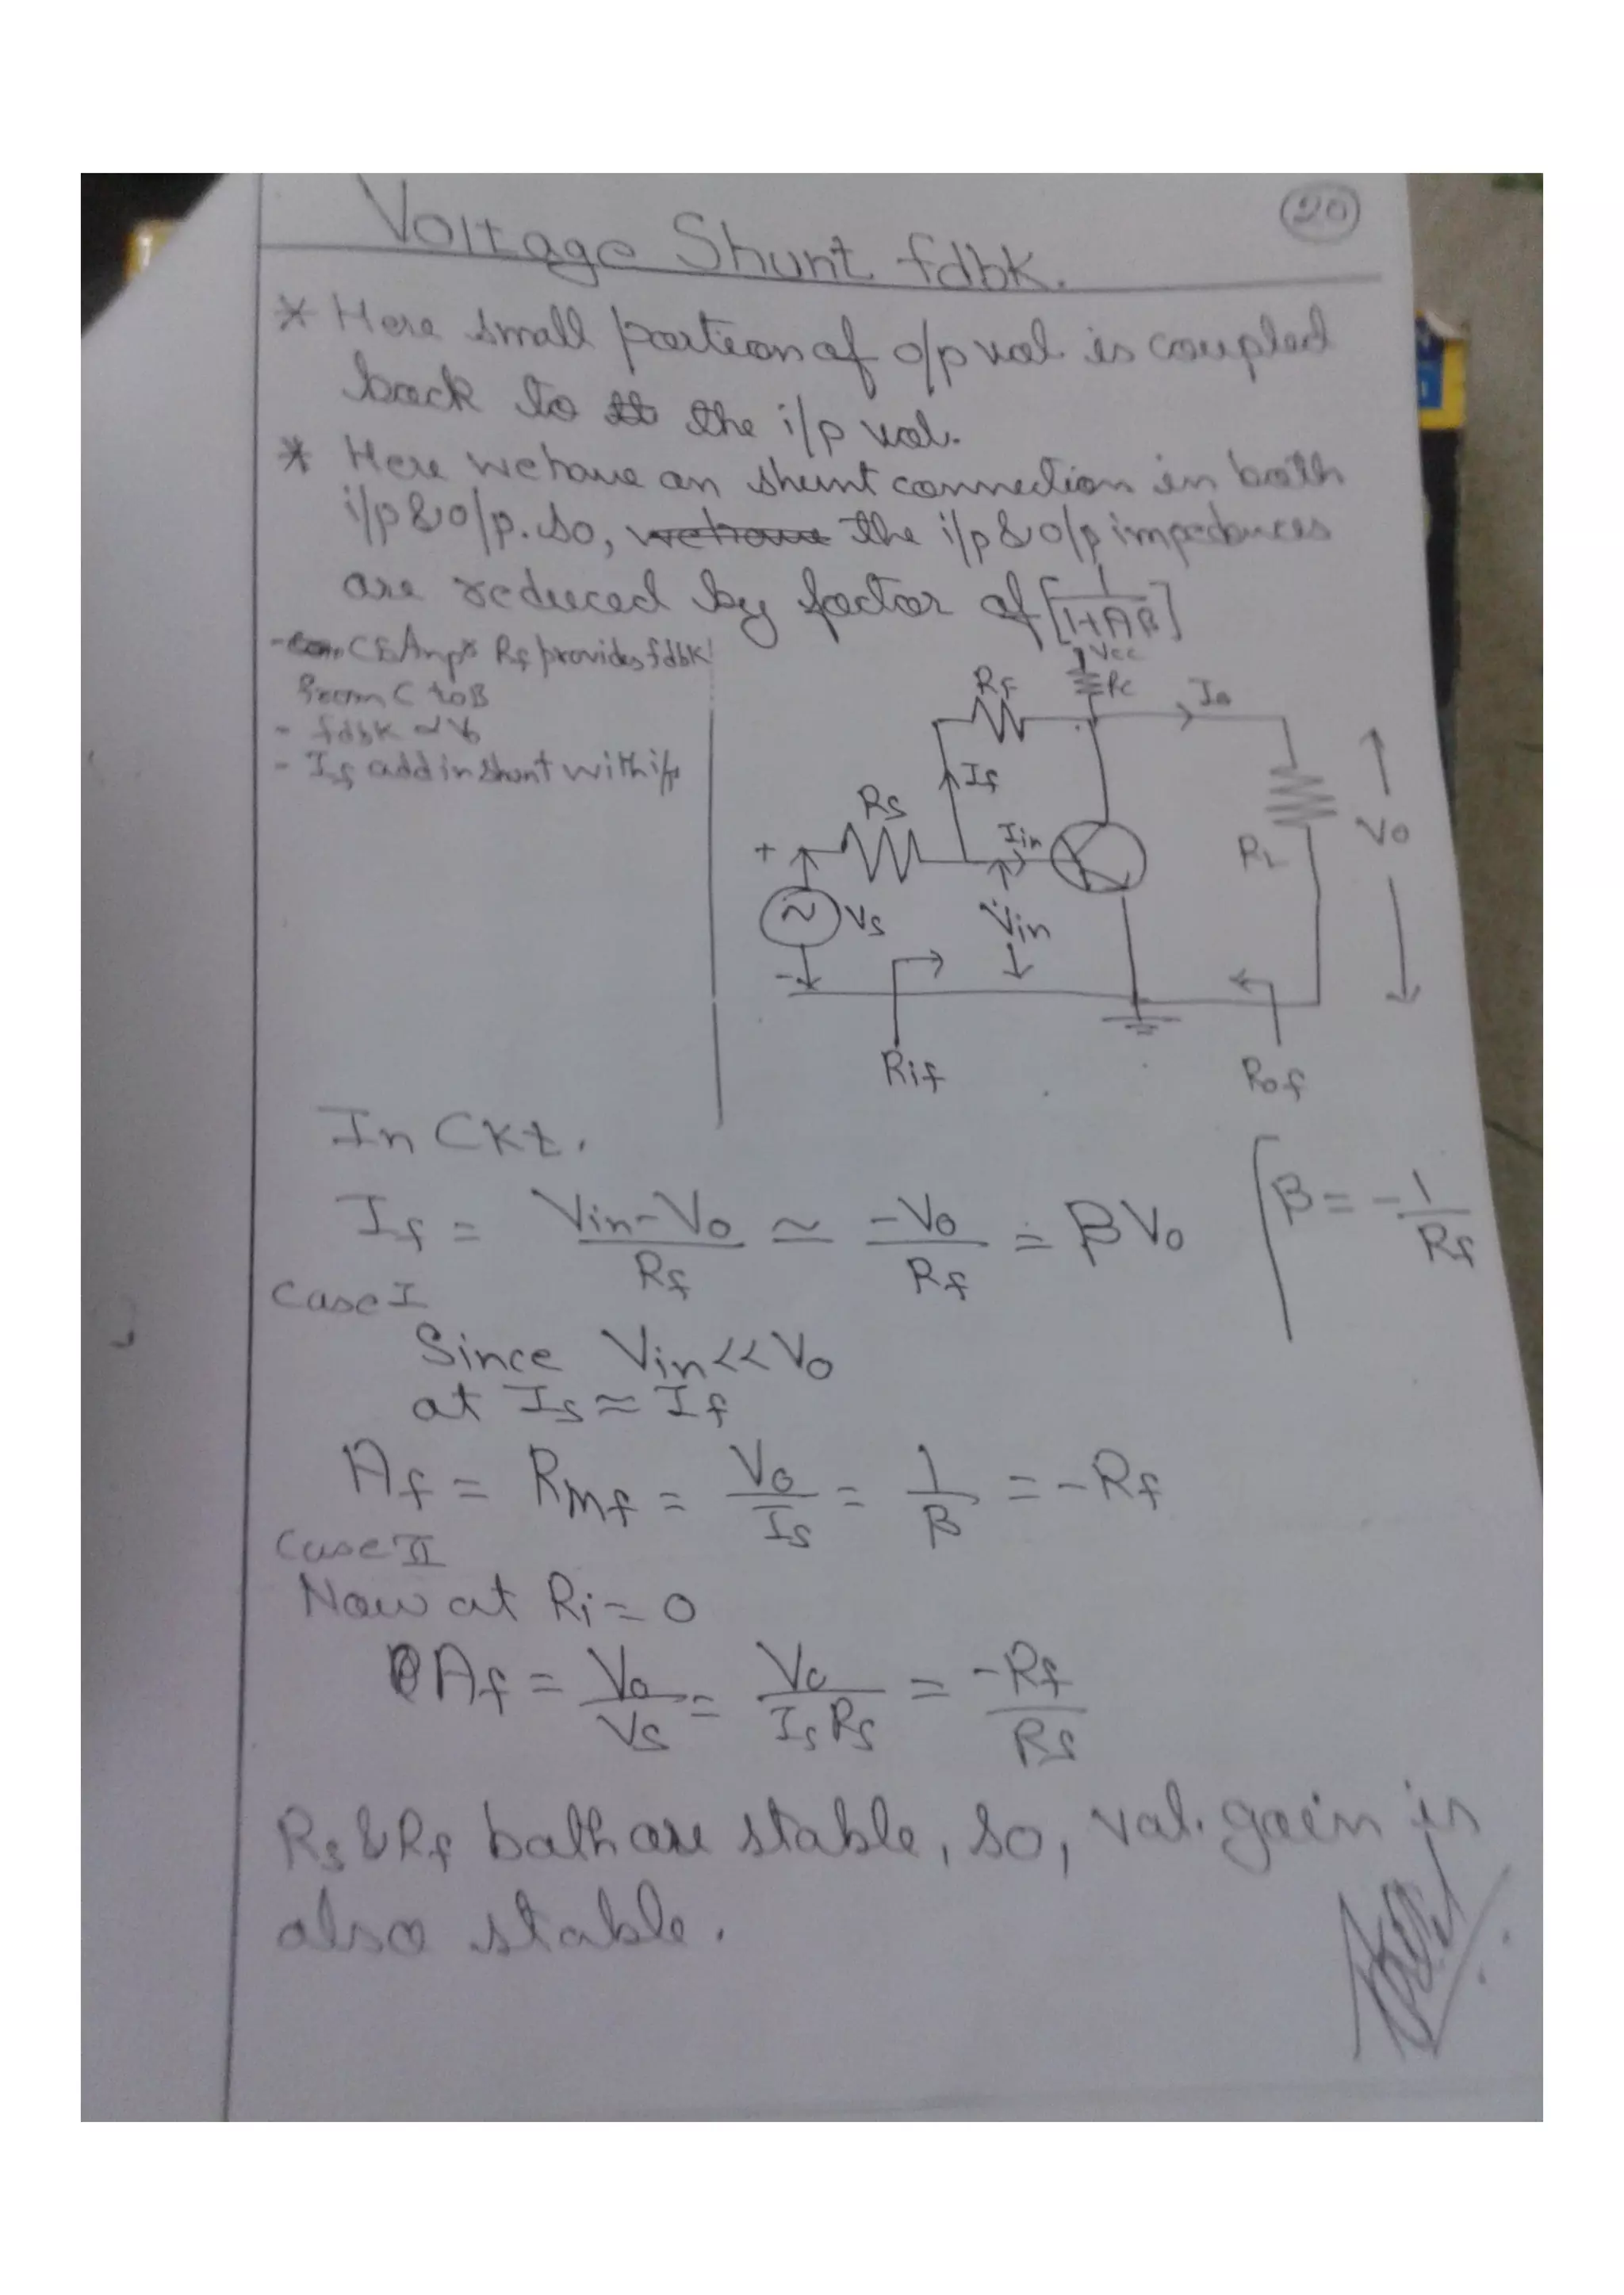 20
Voltage Shunt fdbk.
* Here small portion of o/p vol. is coupled
back to the i/p vol.
* Here we have an shunt connection in both
i/p & o/p. So, we have the i/p & o/p impedances
are reduced by factor of [1/(1+Aβ)]
- CE Amp Rf provides fdbk
from C to B
- fdbk α Vo
- If add in shunt with i/p
Vcc
Rf
Rc
Io
If
Rs
Iin
Vo
RL
+
Vs
Vin
-
Rif
Rof
In Ckt.
If = (Vin-Vo)/Rf ≃ -Vo/Rf = βVo [β = -1/Rf
Case I
Since Vin<<Vo
at Is ≈ If
Af = Rmf = Vo/Is = 1/β = -Rf
Case II
Now at Ri = 0
Af = Vo/Vs = Vo/(Is Rs) = -Rf/Rs
Rs & Rf both are stable, so, vol. gain is
also stable.